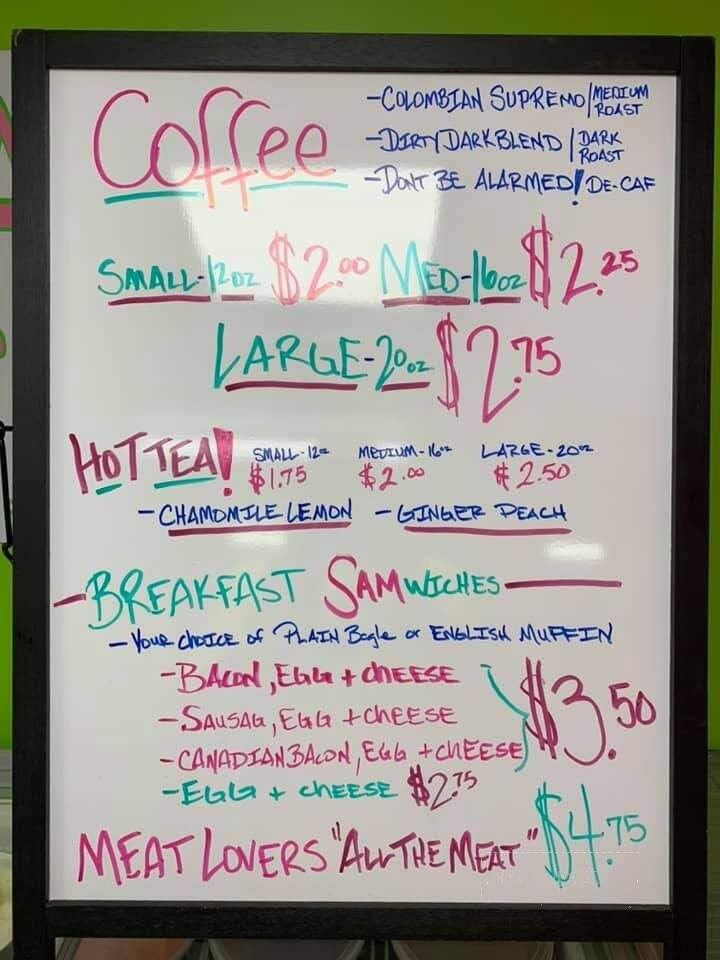 Coffee
-COLOMBIAN SUPREMO/MEDIUM ROAST
-DIRTY DARK BLEND/DARK ROAST
-DONT BE ALARMED! DE-CAF
SMALL-12oz $2.00 MED-16oz $2.25
LARGE-20oz $2.75
HOT TEA! SMALL-12oz MEDIUM-16oz LARGE-20oz
$1.75 $2.00 $2.50
-CHAMOMILE LEMON -GINGER PEACH
-BREAKFAST SAMWICHES-
-YOUR CHOICE OF PLAIN Bagle or ENGLISH MUFFIN
-BACON, EGG + CHEESE
-SAUSAG, EGG + CHEESE $3.50
-CANADIAN BACON, EGG + CHEESE
-EGG + CHEESE $2.75
MEAT LOVERS "ALL THE MEAT" $4.75